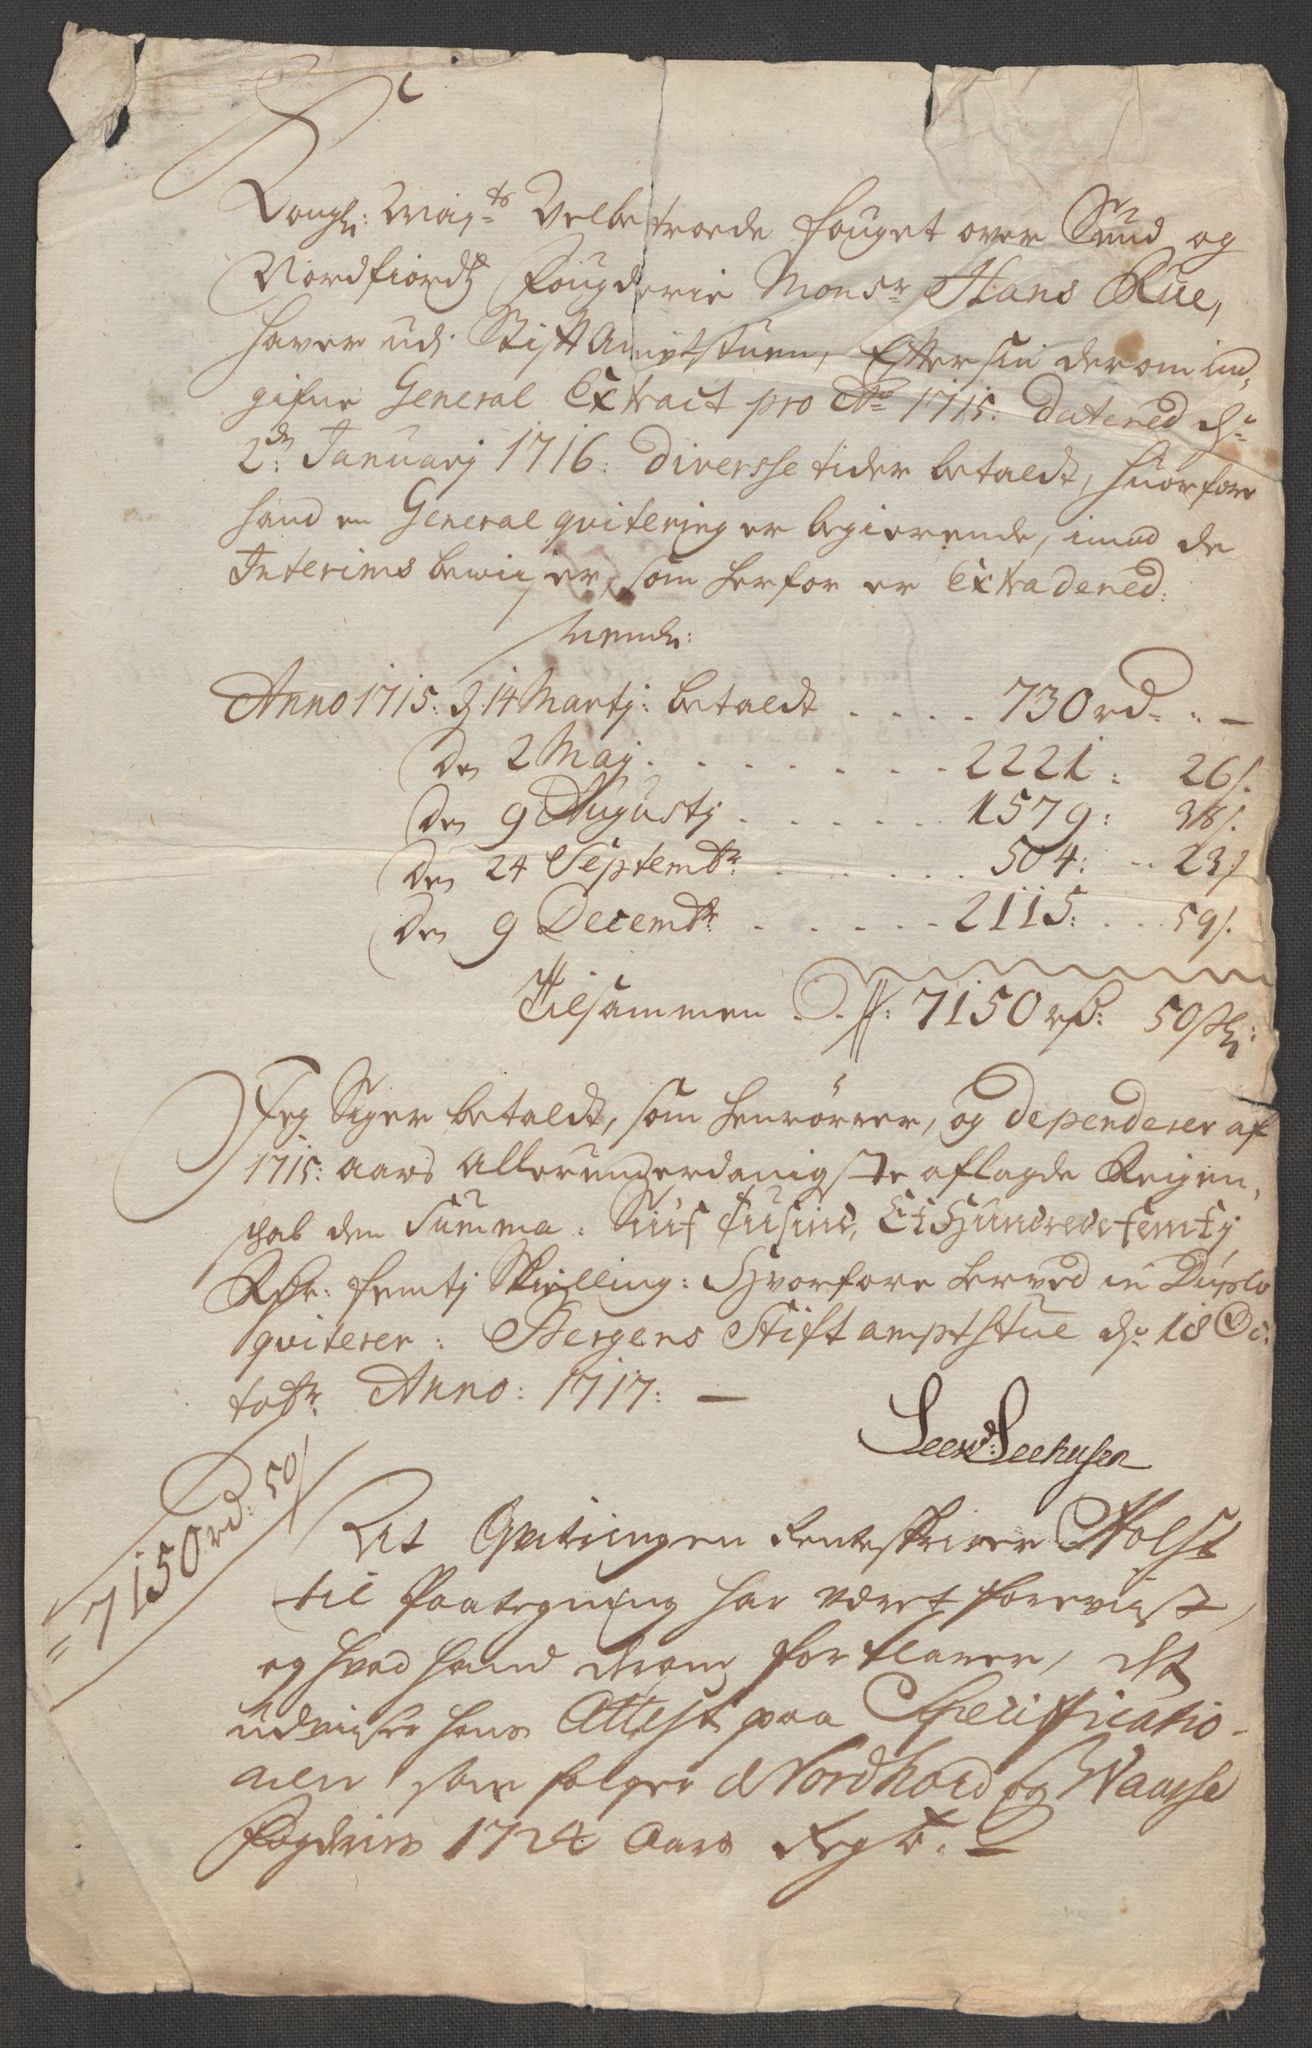 Kongl: May:ts Velbetroede fouget over Sund og
Nordfiordtz fougderie Monsr Hans Rue,
hafver udj Stiftamptstuen, Efter sin derom ind,
gifne General Extract pro Ao 1715. Datered d:
2dn Januarj 1716: diversse tider betaldt, hvorfore
hand en General qvitering er begierende, imod de
Interims beviiser, som herfor er Extradered:
Nemlig:
Anno 1715: d. 14 Martj: betaldt .... 730 rd - . -
den 2 Maj ....... 2221: 26 s.
den 9 Augustj ...... 1579: 38 s.
den 24 Septembr ...... 504: .. 23 s
den 9 Decembr ..... 2115: ... 59 s.
Tilsammen ... 7150 rdr: 50 sk:
Jeg Siger betaldt, som henrörer, og dependerer af
1715: aars Allerunderdanigste aflagde Regen,
skab den Summa: Siuf Tusind, Et Hundrede femtj
Rdr: femtj Skielling: Hvorfore herved in Duplo
qviterer: Bergens Stiftamptstue d: 18 Oc:
tobr. Anno: 1717: -
Seehusen
7150 rd: 50 s
At Qviteringen Renteskriver Holst
til Paategning har været foreviist,
og hvad hand derom forklarer, det
udviiser hans Attest paa Specificatio-
nen som følger Nordhord og Waasse
Fogderies 1724 Aars Regsk.